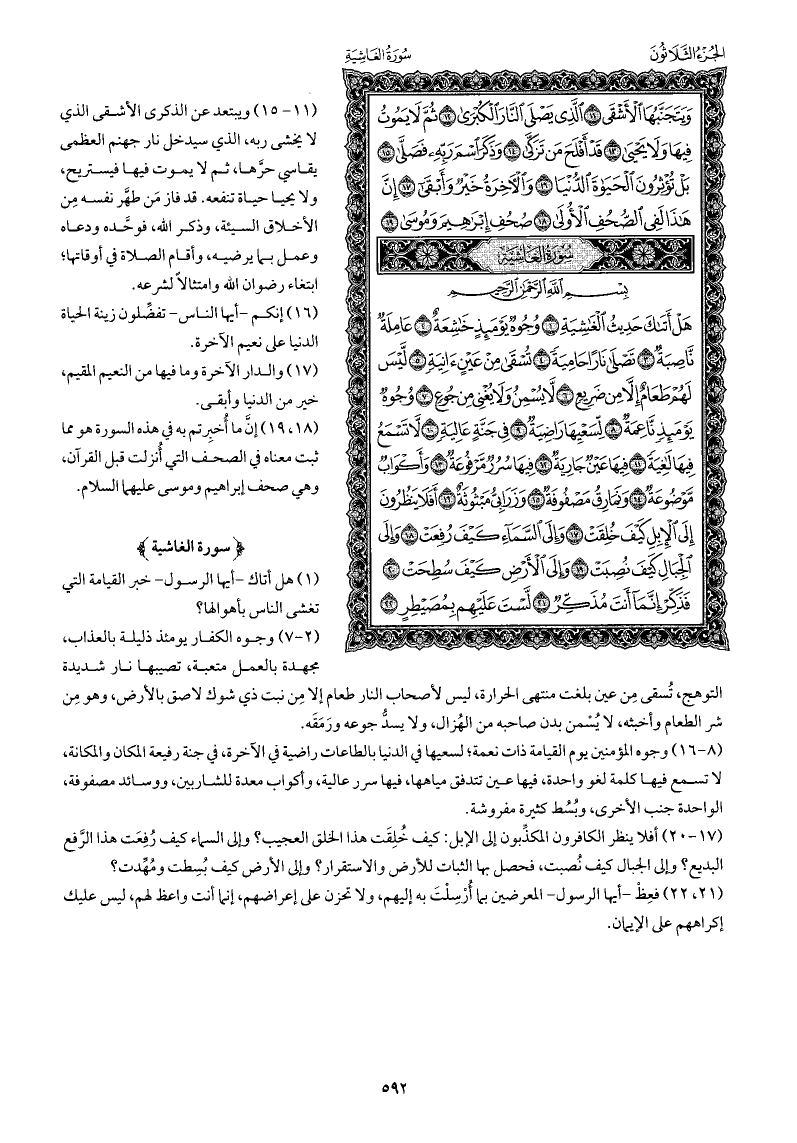 الجُزءُ الثَّلَاثُونَ
سُورَةُ الغَاشِيَةِ
وَيَتَجَنَّبُهَا ٱلْأَشْقَى ۝١١ ٱلَّذِى يَصْلَى ٱلنَّارَ ٱلْكُبْرَىٰ ۝١٢ ثُمَّ لَا يَمُوتُ
فِيهَا وَلَا يَحْيَىٰ ۝١٣ قَدْ أَفْلَحَ مَن تَزَكَّىٰ ۝١٤ وَذَكَرَ ٱسْمَ رَبِّهِۦ فَصَلَّىٰ ۝١٥
بَلْ تُؤْثِرُونَ ٱلْحَيَوٰةَ ٱلدُّنْيَا ۝١٦ وَٱلْءَاخِرَةُ خَيْرٌ وَأَبْقَىٰٓ ۝١٧ إِنَّ
هَٰذَا لَفِى ٱلصُّحُفِ ٱلْأُولَىٰ ۝١٨ صُحُفِ إِبْرَٰهِيمَ وَمُوسَىٰ ۝١٩
سُورَةُ الغَاشِيَةِ
بِسْمِ ٱللَّهِ ٱلرَّحْمَٰنِ ٱلرَّحِيمِ
هَلْ أَتَىٰكَ حَدِيثُ ٱلْغَٰشِيَةِ ۝١ وُجُوهٌ يَوْمَئِذٍ خَٰشِعَةٌ ۝٢ عَامِلَةٌ
نَّاصِبَةٌ ۝٣ تَصْلَىٰ نَارًا حَامِيَةً ۝٤ تُسْقَىٰ مِنْ عَيْنٍ ءَانِيَةٍ ۝٥ لَّيْسَ
لَهُمْ طَعَامٌ إِلَّا مِن ضَرِيعٍ ۝٦ لَّا يُسْمِنُ وَلَا يُغْنِى مِن جُوعٍ ۝٧ وُجُوهٌ
يَوْمَئِذٍ نَّاعِمَةٌ ۝٨ لِّسَعْيِهَا رَاضِيَةٌ ۝٩ فِى جَنَّةٍ عَالِيَةٍ ۝١٠ لَّا تَسْمَعُ
فِيهَا لَٰغِيَةً ۝١١ فِيهَا عَيْنٌ جَارِيَةٌ ۝١٢ فِيهَا سُرُرٌ مَّرْفُوعَةٌ ۝١٣ وَأَكْوَابٌ
مَّوْضُوعَةٌ ۝١٤ وَنَمَارِقُ مَصْفُوفَةٌ ۝١٥ وَزَرَابِىُّ مَبْثُوثَةٌ ۝١٦ أَفَلَا يَنظُرُونَ
إِلَى ٱلْإِبِلِ كَيْفَ خُلِقَتْ ۝١٧ وَإِلَى ٱلسَّمَآءِ كَيْفَ رُفِعَتْ ۝١٨ وَإِلَى
ٱلْجِبَالِ كَيْفَ نُصِبَتْ ۝١٩ وَإِلَى ٱلْأَرْضِ كَيْفَ سُطِحَتْ ۝٢٠
فَذَكِّرْ إِنَّمَآ أَنتَ مُذَكِّرٌ ۝٢١ لَّسْتَ عَلَيْهِم بِمُصَيْطِرٍ ۝٢٢
(١١-١٥) ويبتعد عن الذكرى الأشقى الذي
لا يخشى ربه، الذي سيدخل نار جهنم العظمى
يقاسي حرَّها، ثم لا يموت فيها فيستريح،
ولا يحيا حياة تنفعه. قد فاز مَن طهَّر نفسه مِن
الأخلاق السيئة، وذكر الله، فوحَّده ودعاه
وعمل بما يرضيه، وأقام الصلاة في أوقاتها؛
ابتغاء رضوان الله وامتثالاً لشرعه.
(١٦) إنكم -أيها الناس- تفضِّلون زينة الحياة
الدنيا على نعيم الآخرة.
(١٧) والدار الآخرة وما فيها من النعيم المقيم،
خير من الدنيا وأبقى.
(١٨، ١٩) إنَّ ما أُخبِرتم به في هذه السورة هو مما
ثبت معناه في الصحف التي أُنزلت قبل القرآن،
وهي صحف إبراهيم وموسى عليهما السلام.
﴿سورة الغاشية﴾
(١) هل أتاك -أيها الرسول- خبر القيامة التي
تغشى الناس بأهوالها؟
(٢-٧) وجوه الكفار يومئذ ذليلة بالعذاب،
مجهدة بالعمل متعبة، تصيبها نار شديدة
التوهج، تُسقى مِن عين بلغت منتهى الحرارة، ليس لأصحاب النار طعام إلا مِن نبت ذي شوك لاصق بالأرض، وهو مِن
شر الطعام وأخبثه، لا يُسْمن بدن صاحبه من الهُزال، ولا يسدُّ جوعه ورَمَقَه.
(٨-١٦) وجوه المؤمنين يوم القيامة ذات نعمة؛ لسعيها في الدنيا بالطاعات راضية في الآخرة، في جنة رفيعة المكان والمكانة،
لا تسمع فيها كلمة لغو واحدة، فيها عين تتدفق مياهها، فيها سرر عالية، وأكواب معدة للشاربين، ووسائد مصفوفة،
الواحدة جنب الأخرى، وبُسُط كثيرة مفروشة.
(١٧-٢٠) أفلا ينظر الكافرون المكذِّبون إلى الإبل: كيف خُلِقَت هذا الخلق العجيب؟ وإلى السماء كيف رُفِعَت هذا الرَّفع
البديع؟ وإلى الجبال كيف نُصبت، فحصل بها الثبات للأرض والاستقرار؟ وإلى الأرض كيف بُسِطت ومُهِّدت؟
(٢١، ٢٢) فعِظْ -أيها الرسول- المعرضين بما أُرْسِلْتَ به إليهم، ولا تحزن على إعراضهم، إنما أنت واعظ لهم، ليس عليك
إكراههم على الإيمان.
٥٩٢